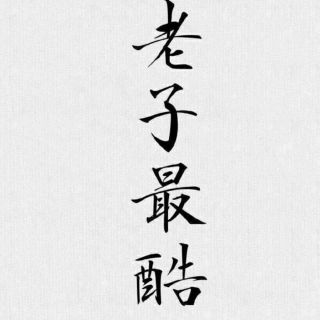 老子最酷